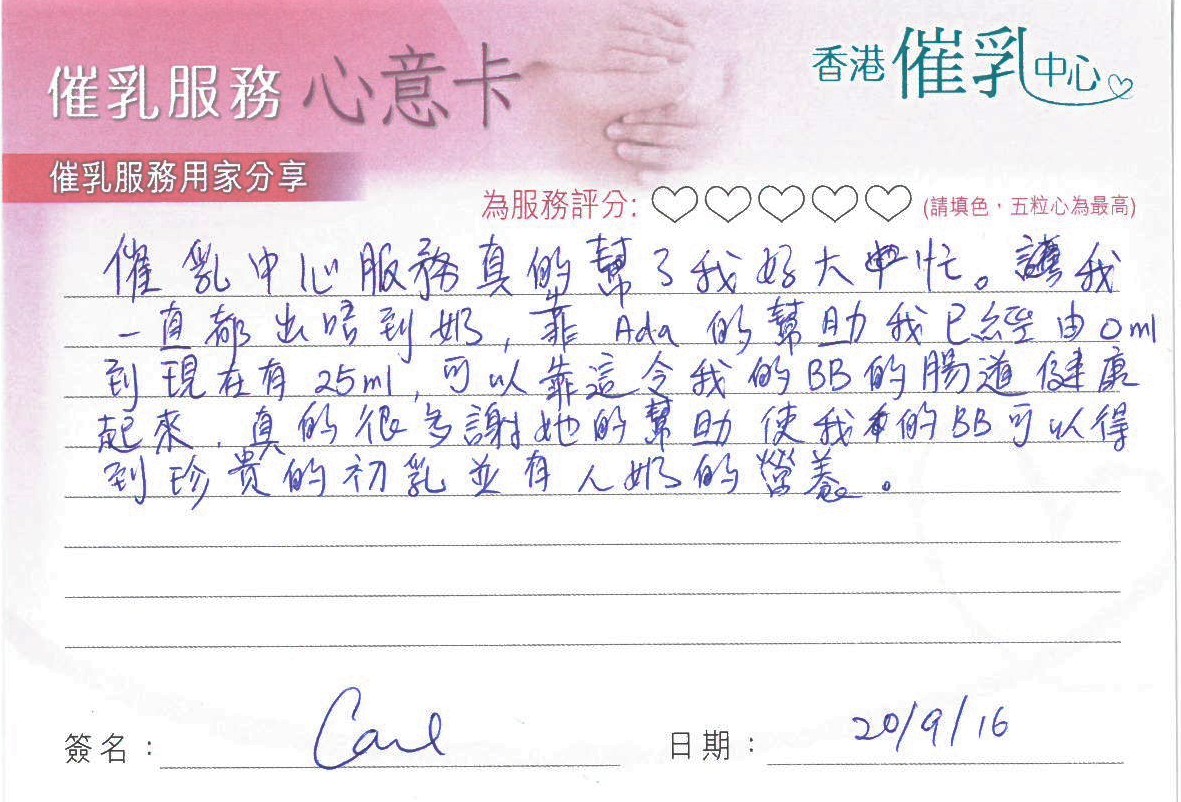 催乳服務 心意卡
香港催乳中心
催乳服務用家分享
為服務評分: ♡♡♡♡♡ (請填色，五粒心為最高)
催乳中心服務真的幫了我好大忙。讓我
一直都出唔到奶, 靠 Ada 的幫助我已經由0ml
到現在有 25ml, 可以靠這令我的BB的腸道健康
起來, 真的很多謝她的幫助使我的BB可以得
到珍貴的初乳並有人奶的營養。
簽名：
日期： 20/9/16